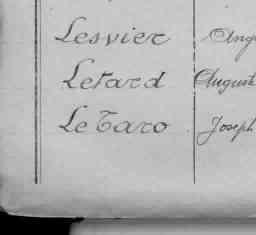 Lesvier
Letard Auguste
Le Taro Joseph